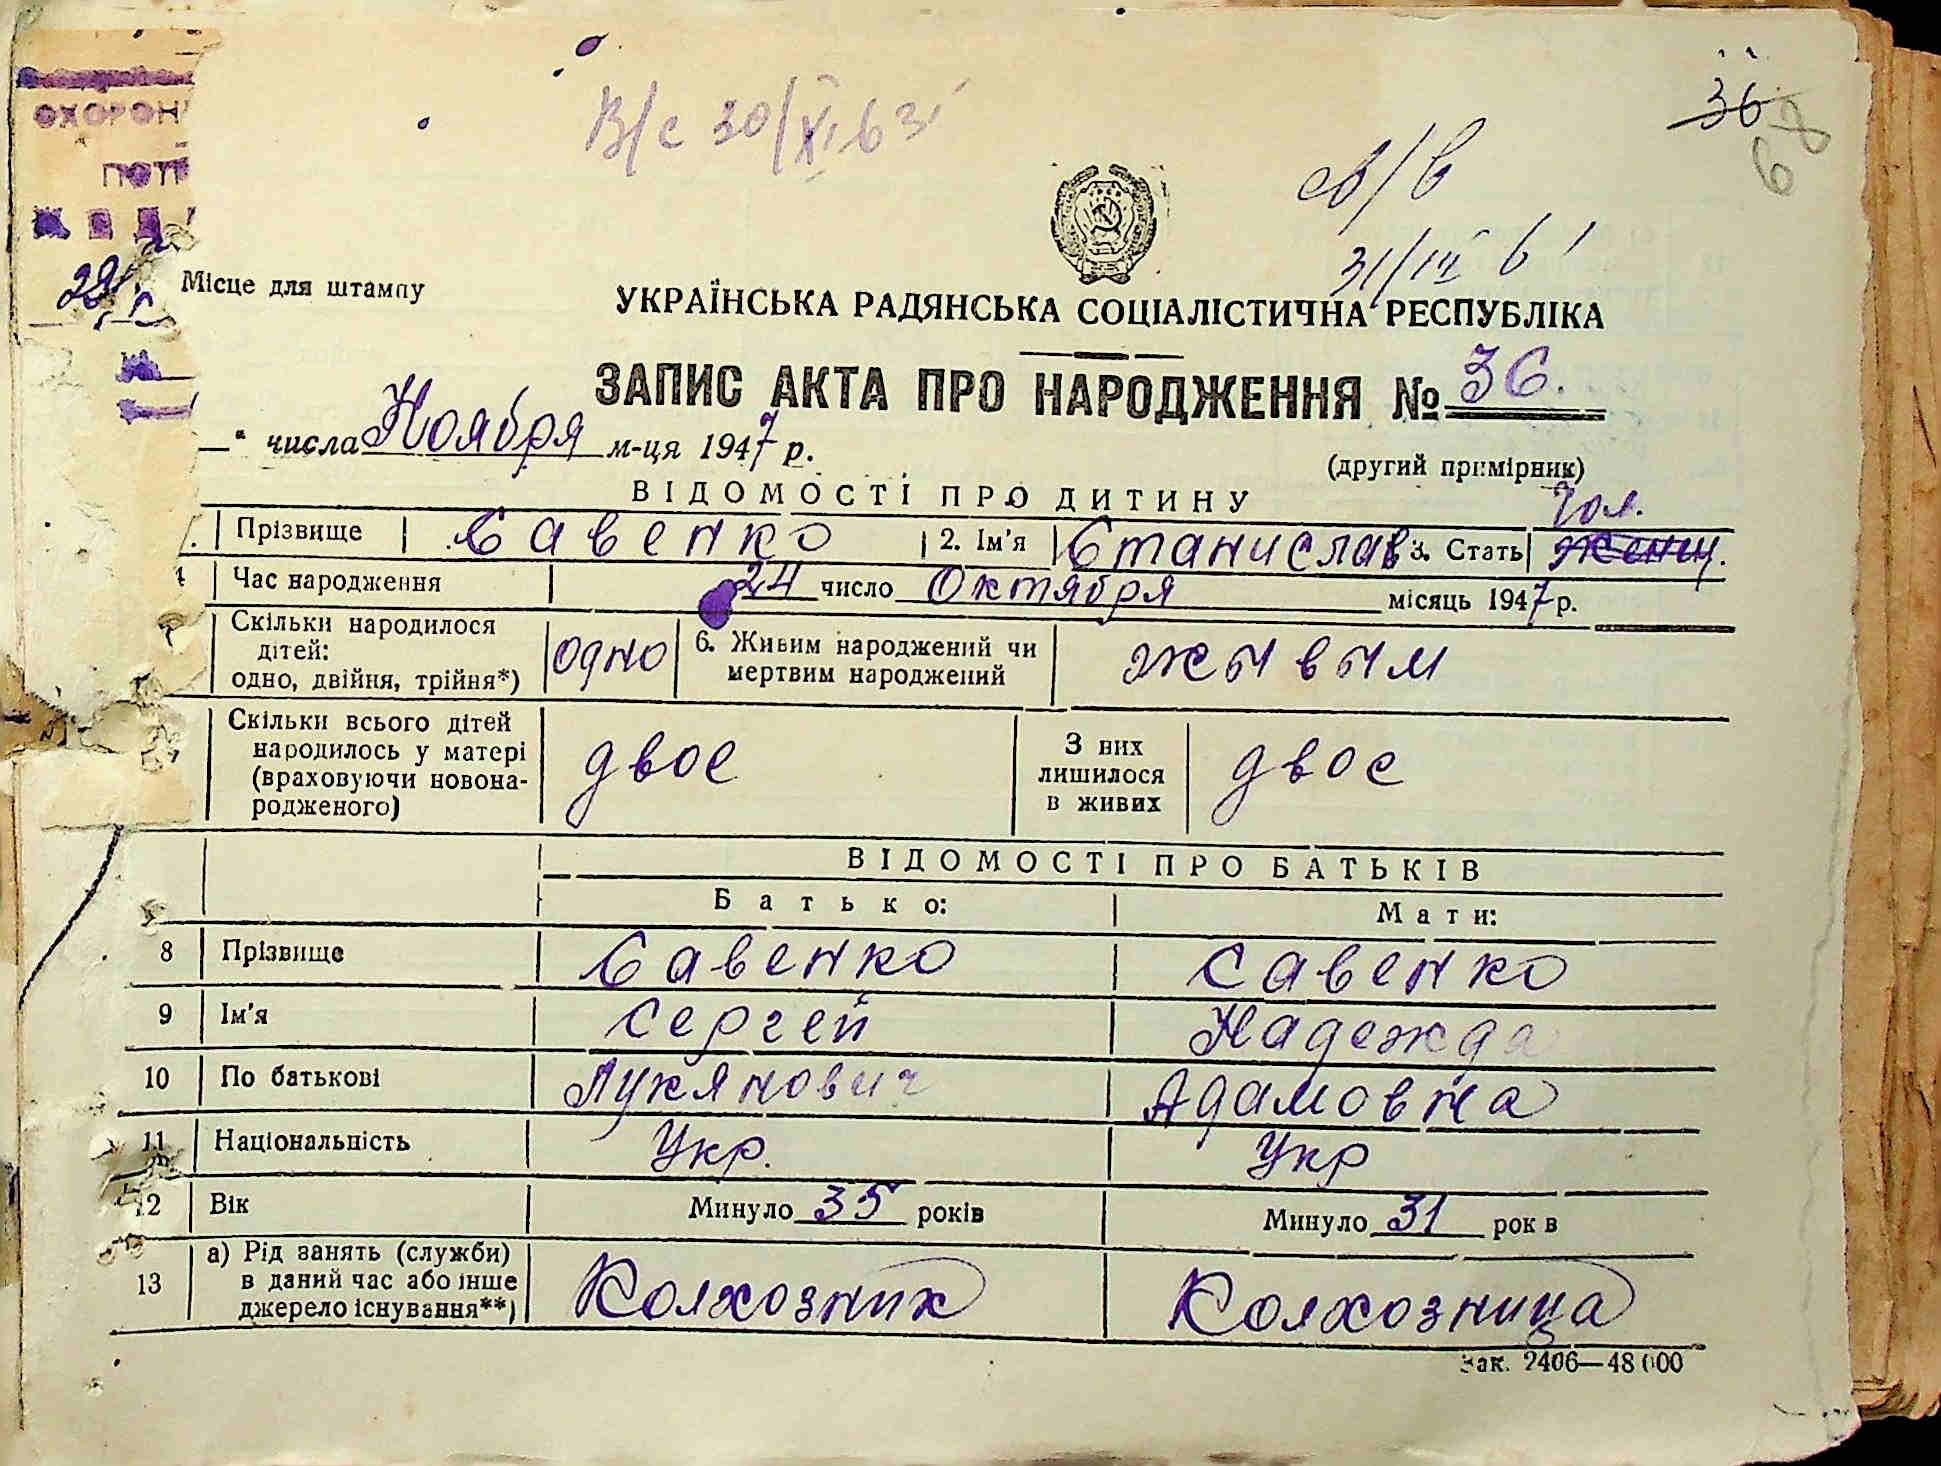 36
68
В/с 30/XI 63
ОХОРОН
Місце для штампу
УКРАЇНСЬКА РАДЯНСЬКА СОЦІАЛІСТИЧНА РЕСПУБЛІКА
ЗАПИС АКТА ПРО НАРОДЖЕННЯ № 36.
" числа Ноября м-ця 1947 р.
(другий примірник)
ВІДОМОСТІ ПРО ДИТИНУ
Прізвище Савенко 2. Ім'я Станислав 3. Стать женщ. чол.
4 Час народження 24 число Октября місяць 1947 р.
Скільки народилося дітей:
одно, двійня, трійня*) одно 6. Живим народжений чи
мертвим народжений жывым
Скільки всього дітей
народилось у матері
(враховуючи новона-
родженого) двое
З них
лишилося
в живих двое
ВІДОМОСТІ ПРО БАТЬКІВ
Батько: Мати:
8 Прізвище Савенко Савенко
9 Ім'я Сергей Надежда
10 По батькові Лукянович Адамовна
11 Національність Укр. Укр
12 Вік Минуло 35 років Минуло 31 рок в
13 а) Рід занять (служби)
в даний час або інше
джерело існування**) Колхозник Колхозница
Зак. 2406—48 000